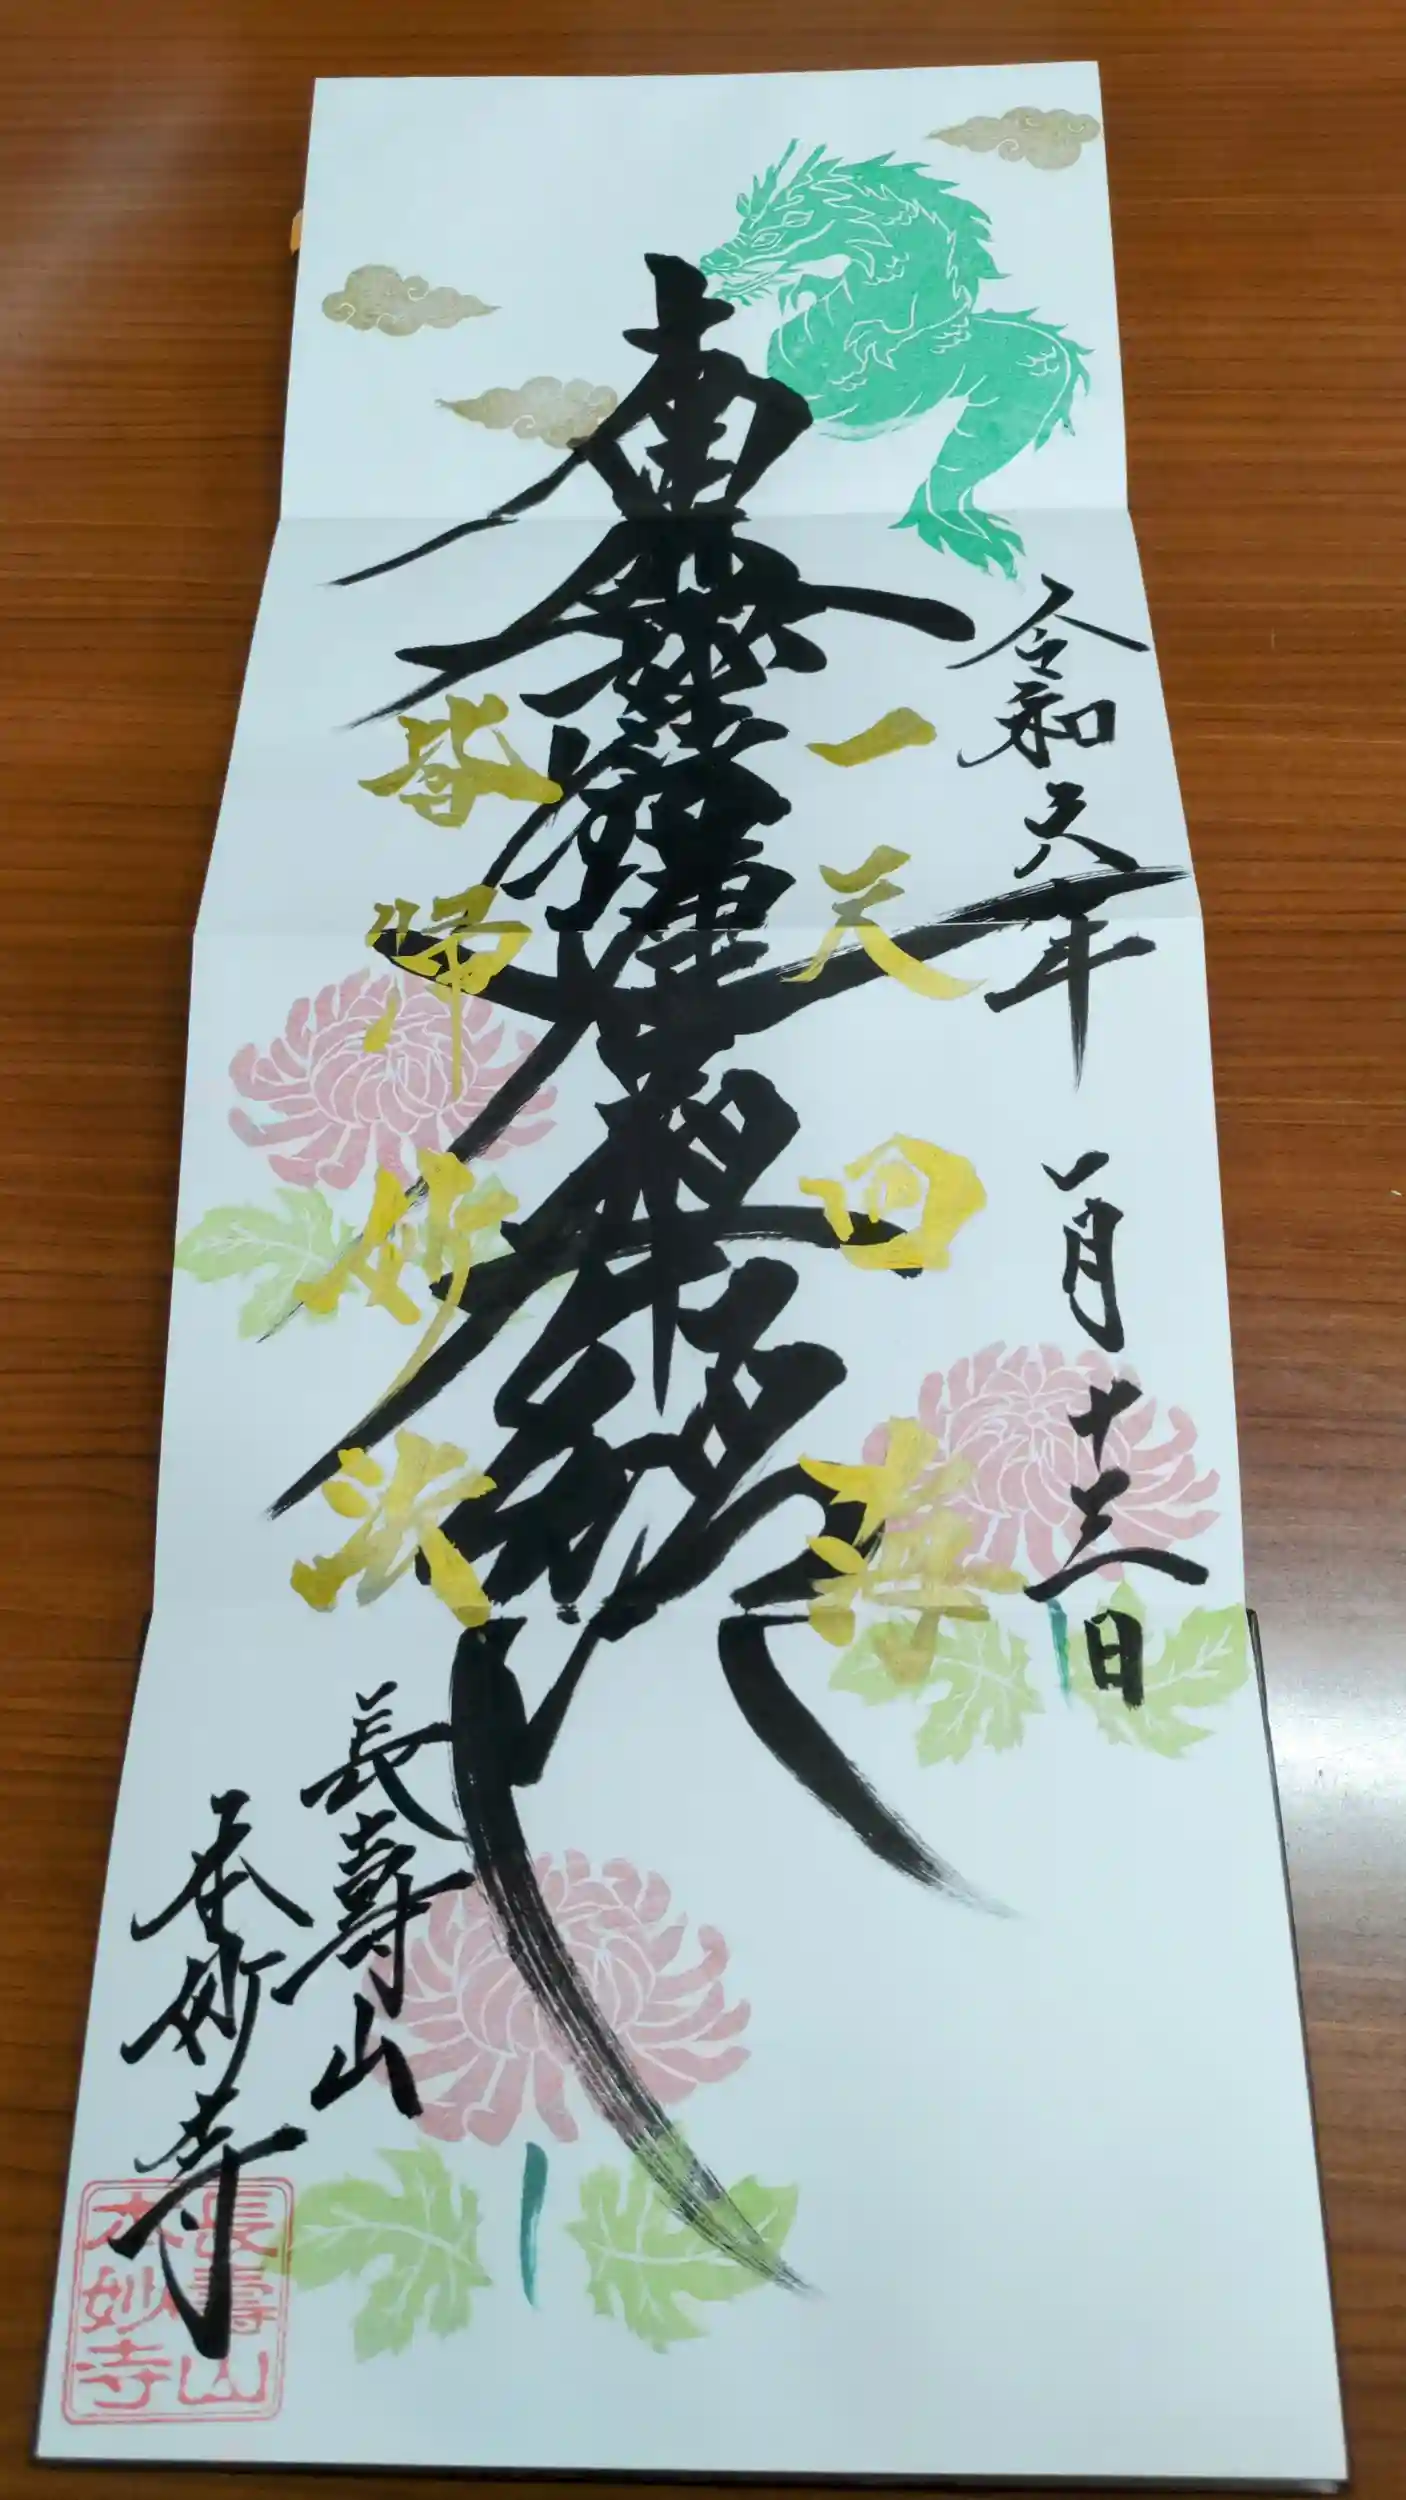 令和六年 一月十三日
一天四海
南無
皆帰妙法
長壽山
本妙寺
長壽山
本妙寺